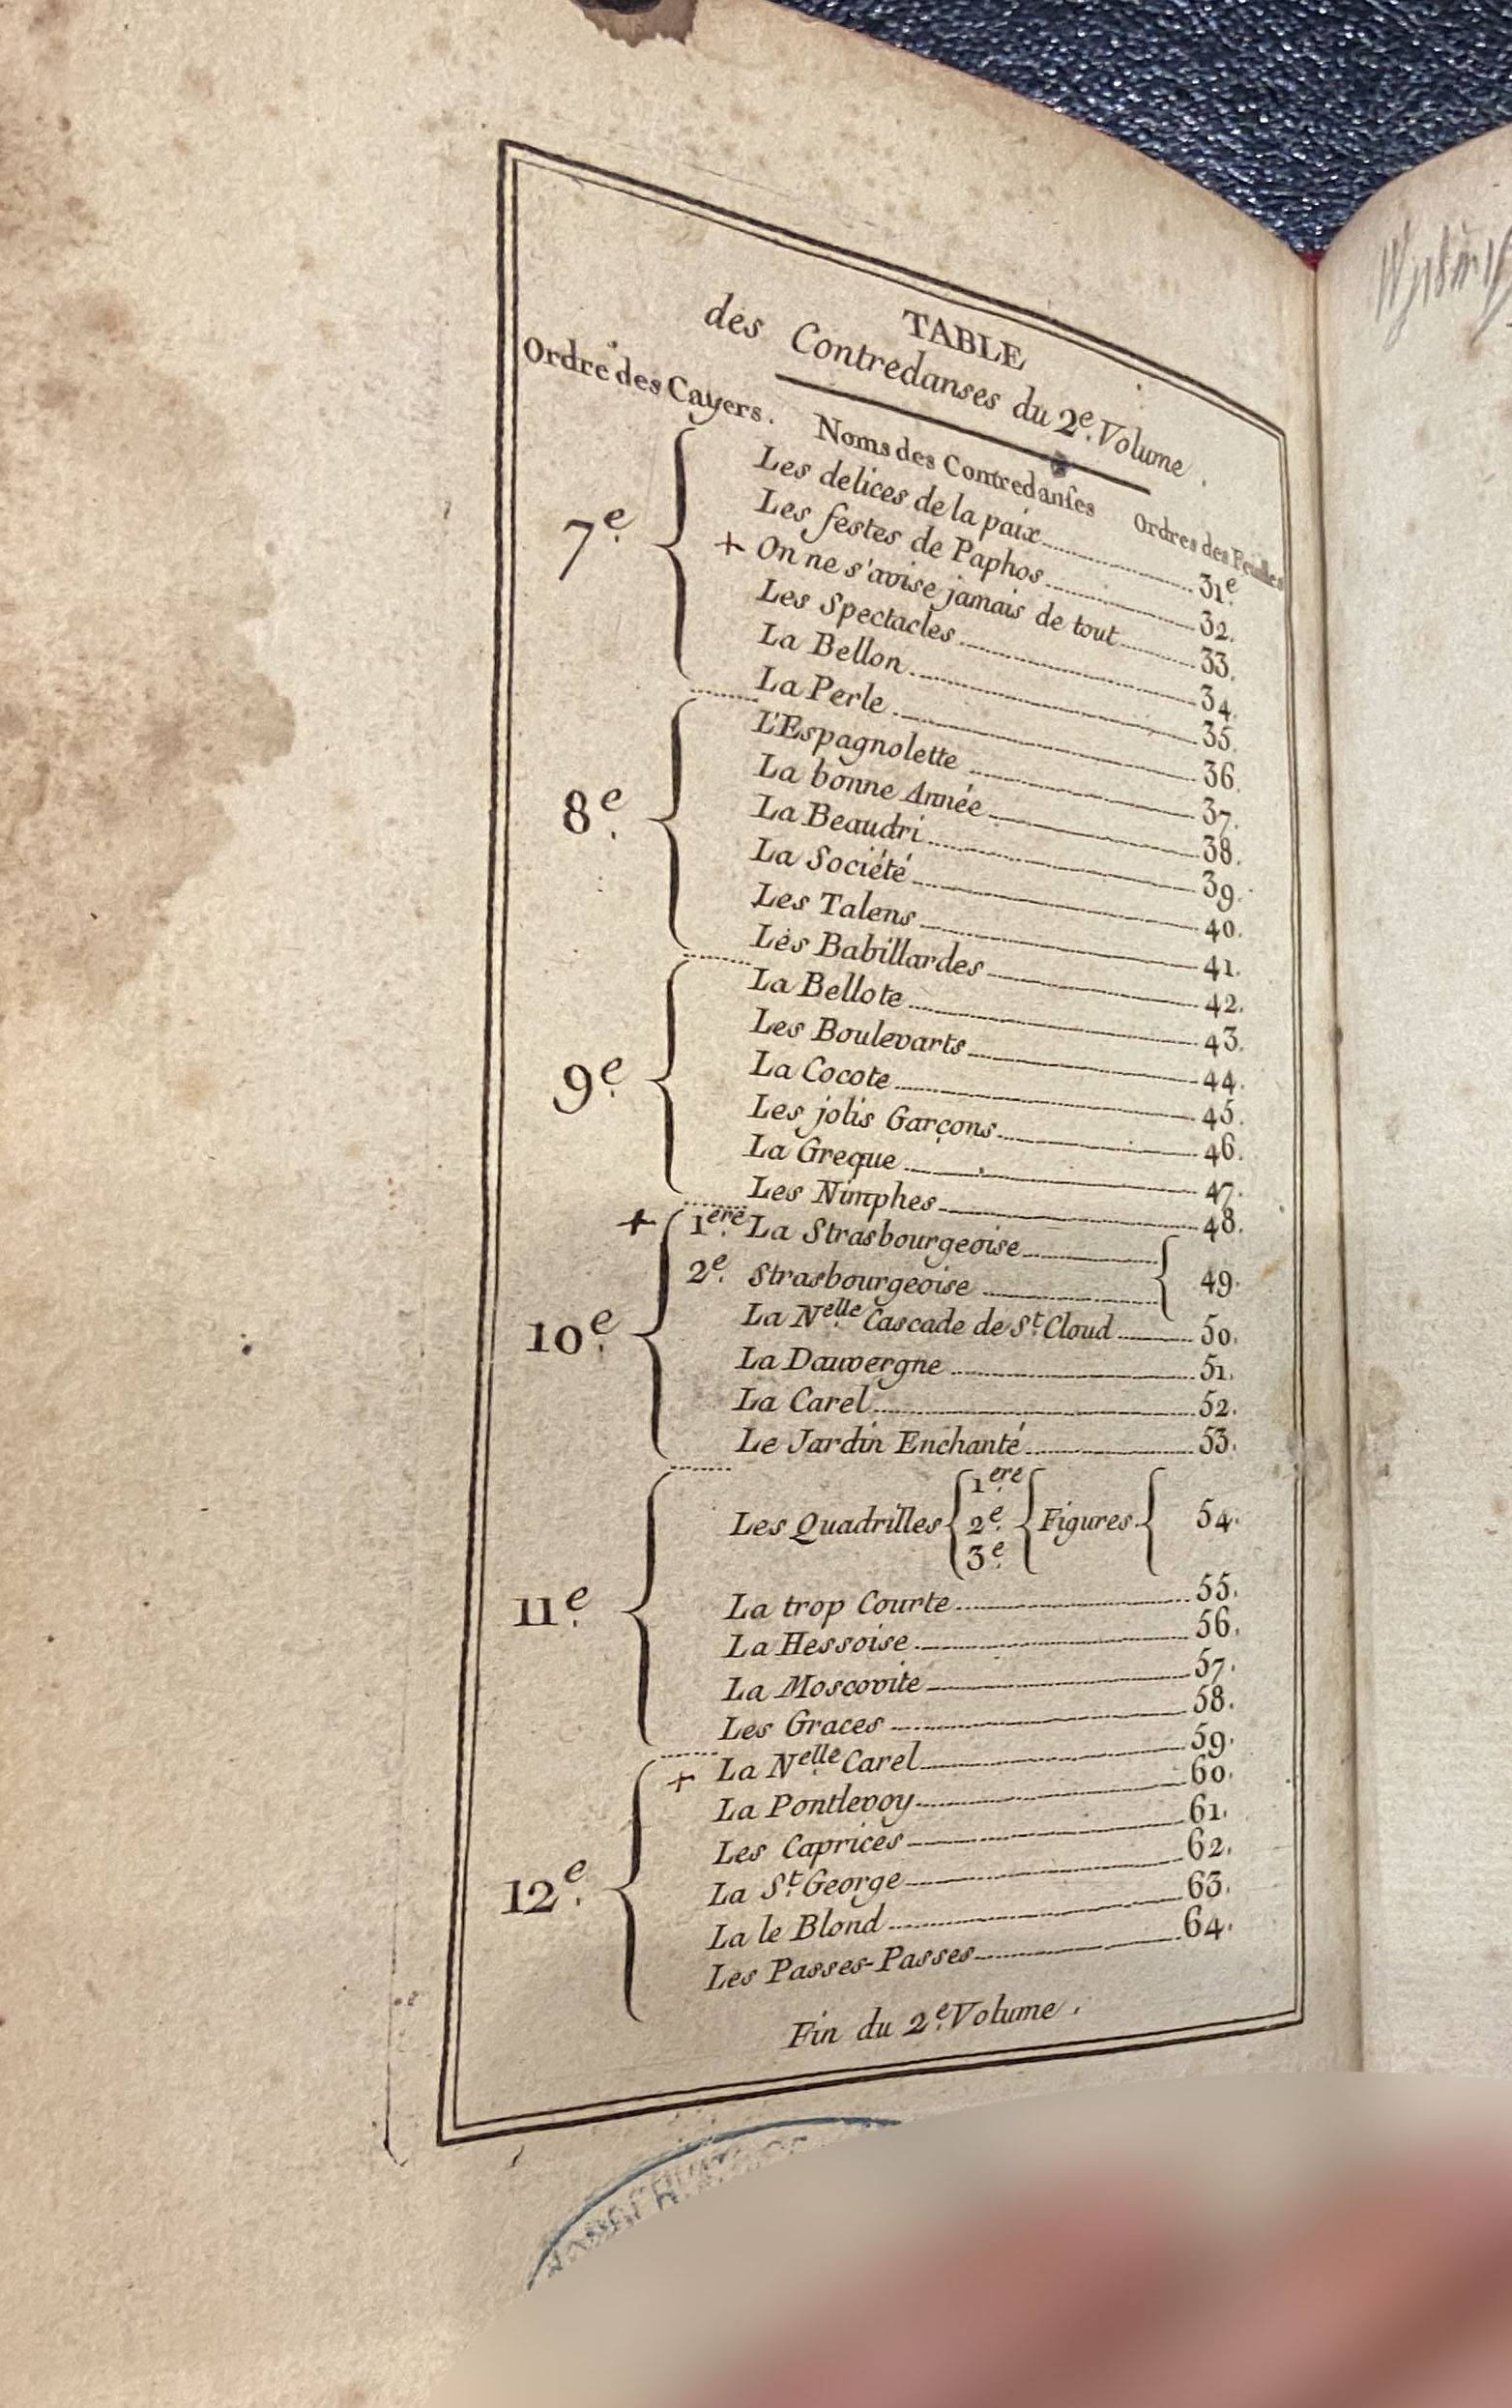 TABLE
des Contredanses du 2e. Volume.
Ordre des Cayers. Noms des Contredanſes Ordres des Feuilles
7e. Les delices de la paix 31e.
Les festes de Paphos 32.
+ On ne s'avise jamais de tout 33.
Les Spectacles 34.
La Bellon 35.
La Perle 36.
8e. L'Espagnolette 37.
La bonne Année 38.
La Beaudri 39.
La Société 40.
Les Talens 41.
Les Babillardes 42.
9e. La Bellote 43.
Les Boulevarts 44.
La Cocote 45.
Les jolis Garçons 46.
La Greque 47.
Les Nimphes 48.
+ 10e. 1ere. La Strasbourgeoise 49.
2e. Strasbourgeoise
La Nelle. Cascade de St. Cloud 50.
La Dauvergne 51.
La Carel 52.
Le Jardin Enchanté 53.
11e. Les Quadrilles 1ere. 2e. 3e. Figures 54.
La trop Courte 55.
La Hessoise 56.
La Moscovite 57.
Les Graces 58.
12e. + La Nelle. Carel 59.
La Pontlevoy 60.
Les Caprices 61.
La St. George 62.
La le Blond 63.
Les Passes-Passes 64.
Fin du 2e. Volume.